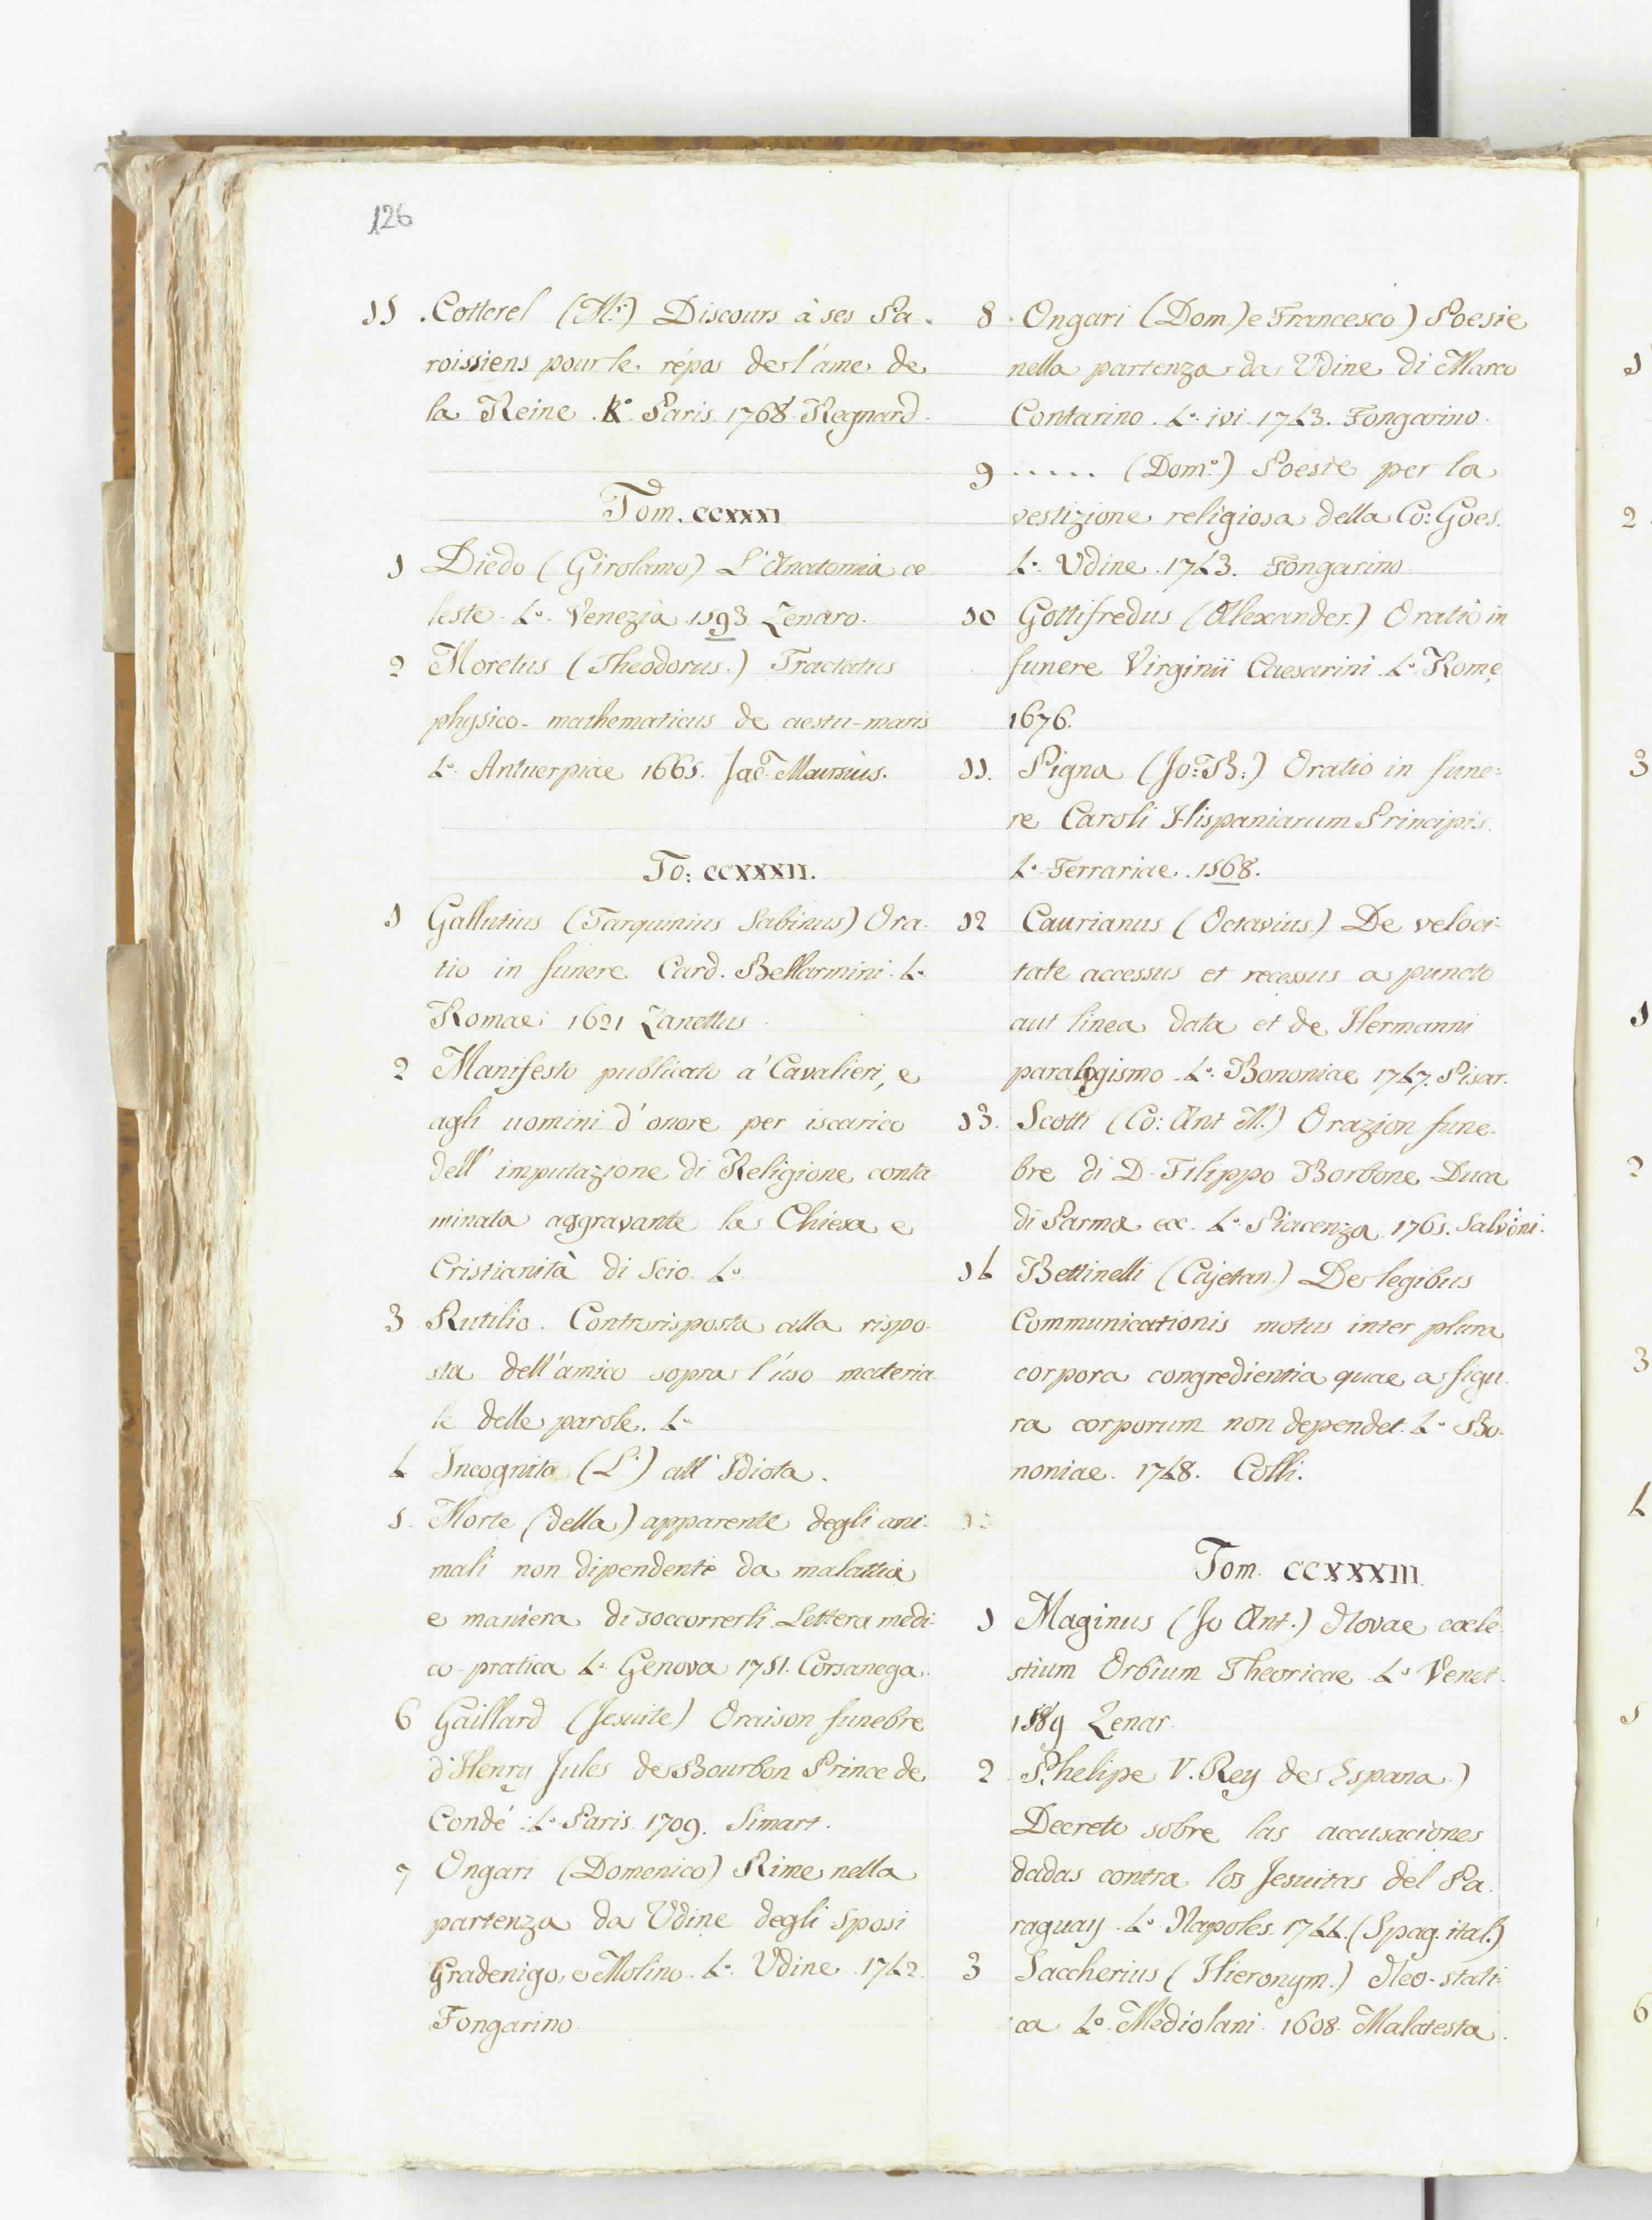 126
11 . Cotterel (M.r) Discours à ses Pa-
roissiens pour le répos de l'âme de
la Reine. 4.º Paris. 1768. Regnard.
Tom. CCXXXI
1 Diedo (Girolamo) L'Anatomia ce
leste. 4.º Venezia 1593 Zenaro.
2 Moretus (Theodorus.) Tractatus
physico-mathematicus de aestu-maris
4.º Antuerpiae 1665. Jac. Meursius.
To: CCXXXII.
1 Gallutius (Tarquinius Sabinus) Ora-
tio in funere Card. Bellarmini. 4.º
Romae 1621 Zanettus
2 Manifesto publicato a' Cavalieri, e
agli uomini d'onore per iscarico
dell'imputazione di Religione conta
minata aggravante la Chiesa e
Cristianità di Scio. 4.º
3 Rutilio. Controrisposta alla rispo-
sta dell'amico sopra l'uso materia
le delle parole. 4.º
4 Incognita (L') all'Idiota.
5. Morte (della) apparente degli ani-
mali non dipendente da malattia
e maniera di soccorrerli Lettera medi-
co-pratica 4.º Genova 1751. Corsanega.
6 Gaillard (Jesuite) Oraison funebre
d'Henry Jules de Bourbon Prince de
Condé. 4.º Paris 1709. Simart.
7 Ongari (Domenico) Rime nella
partenza da Udine degli Sposi
Gradenigo, e Molino. 4.º Udine 1742.
Fongarino.
8 . Ongari (Dom.) e Francesco) Poesie
nella partenza da Udine di Marco
Contarino. 4.º ivi. 1743. Fongarino.
9 ..... (Dom.º) Poesie per la
vestizione religiosa della Co: Goes.
4.º Udine. 1743. Fongarino
10 Gottifredus (Alexander.) Oratio in
funere Virginii Caesarini 4.º Romę
1676.
11. Pigna (Jo: B:) Oratio in fune=
re Caroli Hispaniarum Principis.
4.º Ferrariae. 1568.
12 Caurianus (Octavius) De veloci-
tate accessus et recessus a puncto
aut linea data et de Hermanni
paralogismo 4.º Bononiae 1747. Pisar.
13. Scotti (Co: Ant. M.) Orazion fune-
bre di D. Filippo Borbone Duca
di Parma ec. 4.º Piacenza 1765. Salvoni.
14 Bettinelli (Cajetan.) De legibus
Communicationis motus inter plura
corpora congredientia quae a figu-
ra corporum non dependet. 4.º Bo-
noniae. 1748. Colli.
Tom. CCXXXIII
1 Maginus (Jo Ant.) Novae coele-
stium Orbium Theoricae 4.º Venet.
1589 Zenar.
2 Phelipe V. Rey de Espana)
Decreto sobre las accusaciones
dadas contra los Jesuitas del Pa-
raguay. 4.º Napoles. 1744. (Spag. ital.)
3 Saccherius (Hieronym.) Neo-stati-
ca 4.º Mediolani. 1608. Malatesta.
1
2
3
1
2
3
4
5
6